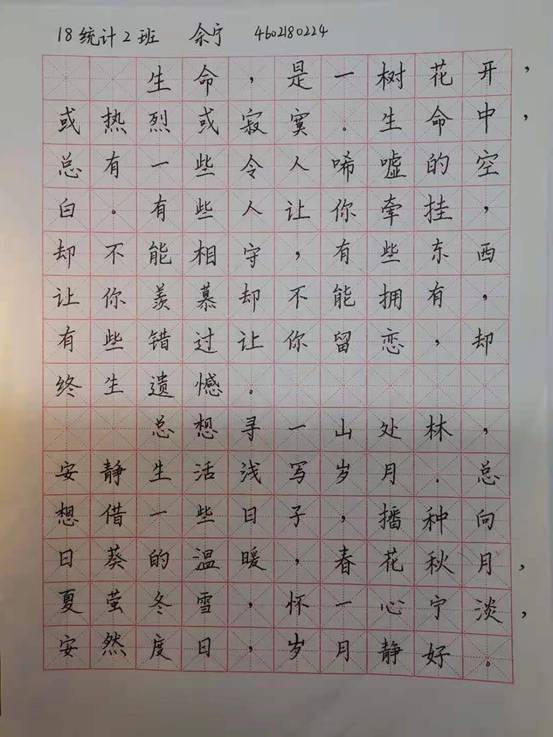 18统计2班 余宁 4602180224
生命，是一树花开，
或热烈或寂寞。生命中，
总有一些令人唏嘘的空
白。有些人让你牵挂，
却不能相守，有些东西
让你羡慕却不能拥有，
有些错过让你留恋，却
终生遗憾。
总想寻一山处林，
安静生活浅写岁月．总
想借一些日子，播种向
日葵的温暖，春花秋月，
夏萤冬雪，怀一心宁淡，
安然度日，岁月静好。